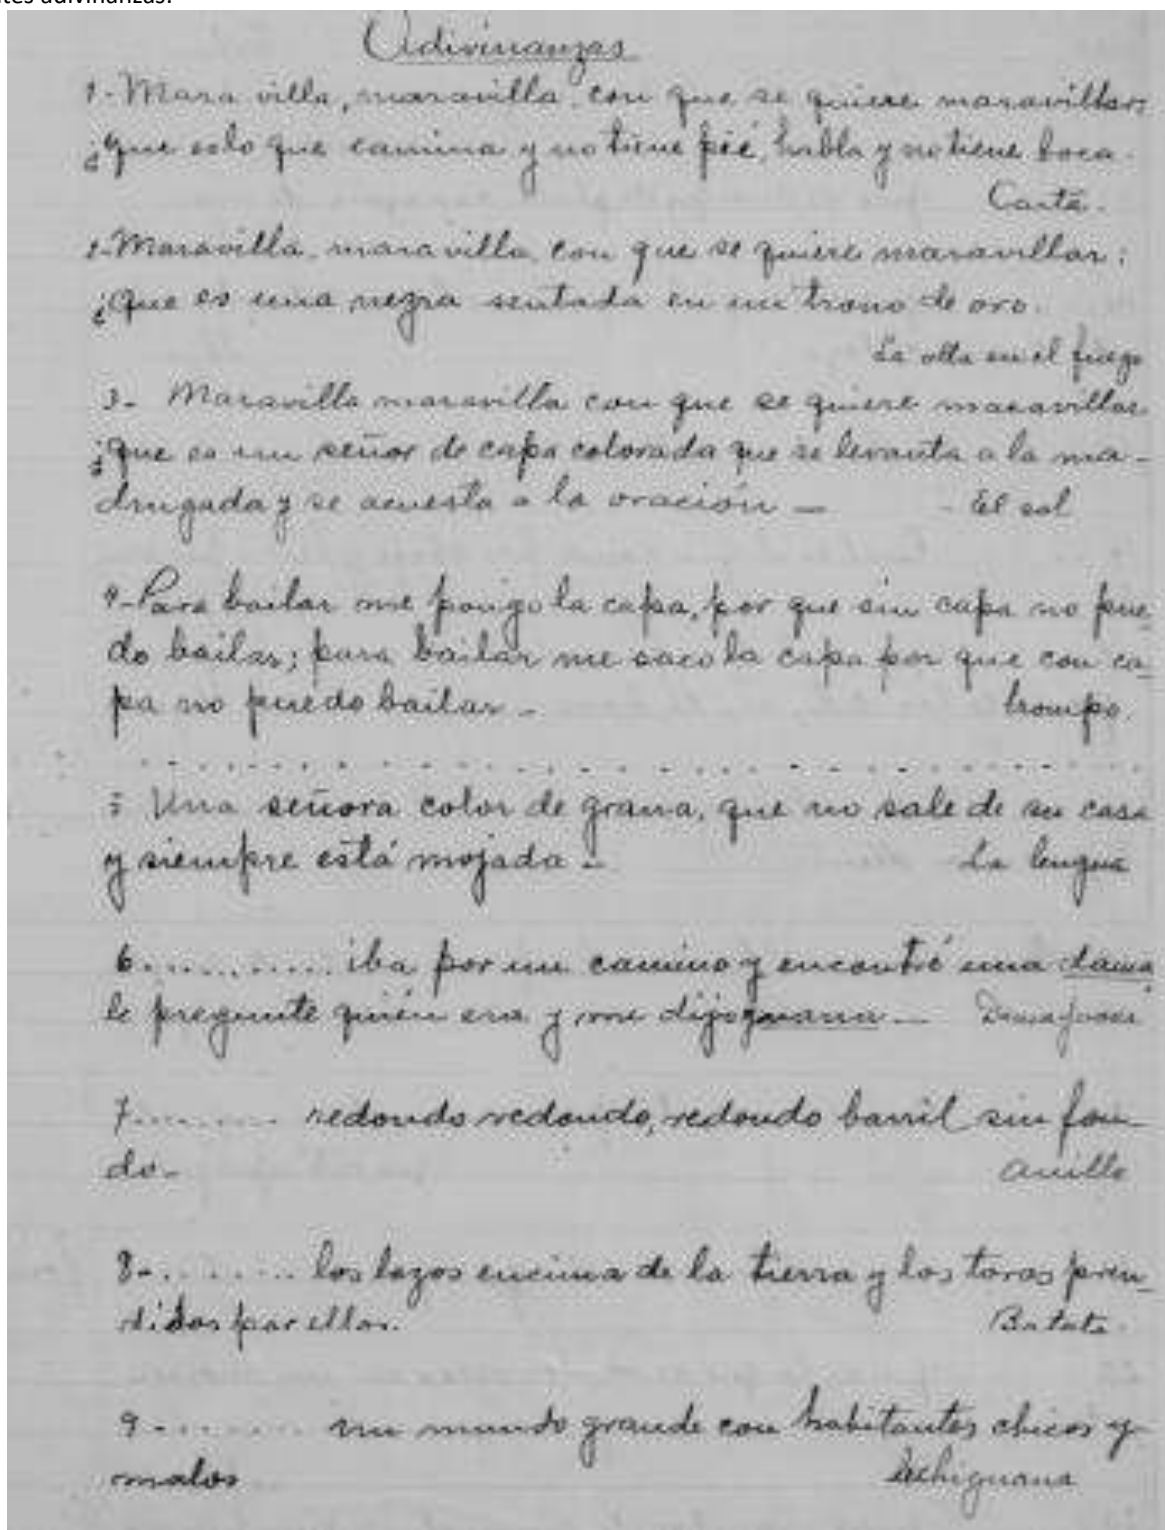 tes adivinanzas.
Adivinanzas
1- Mara villa, maravilla con que se quiere maravillar;
¿que es lo que camina y no tiene pié, habla y no tiene boca.
Carta.
2- Maravilla, maravilla con que se quiere maravillar:
¿Que es una negra sentada en un trono de oro.
La olla en el fuego
3- Maravilla maravilla con que se quiere maravillar
¿que es un señor de capa colorada que se levanta a la ma-
drugada y se acuesta a la oración - El sol
4- Para bailar me pongo la capa, por que sin capa no pue-
do bailar; para bailar me saco la capa por que con ca-
pa no puedo bailar - trompo.
5 Una señora color de grana, que no sale de su casa
y siempre está mojada - La lengua
6........... iba por un camino y encontré una dama
le pregunte quién era y me dijo juana -
7......... redondo redondo, redondo barril sin fon-
do- anillo
8-........ los lazos encima de la tierra y los toros pren-
didos por ellos. Batata.
9-....... un mundo grande con habitantes chicos y
malos Lechiguana